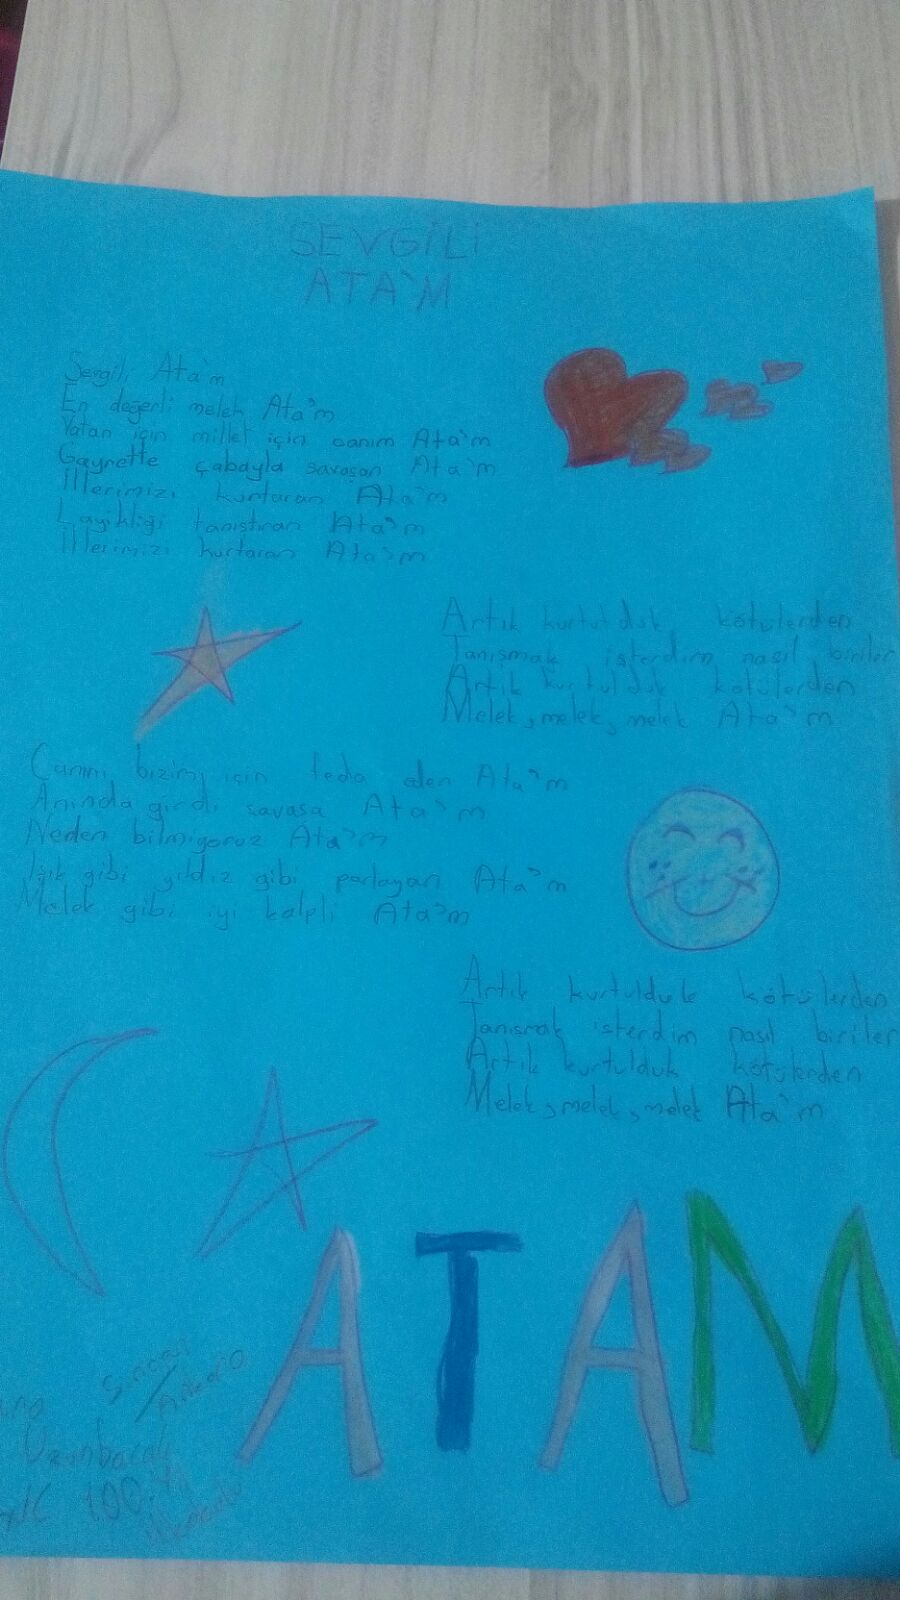 SEVGİLİ
ATA'M
Sevgili Ata'm
En değerli melek Ata'm
Vatan için millet için canım Ata'm
Gayrette çabayla savaşan Ata'm
İllerimizi kurtaran Ata'm
Layikliği tanıştıran Ata'm
İllerimizi kurtaran Ata'm
Artık kurtulduk kötülerden
Tanışmak isterdim nasıl biriler
Artık kurtulduk kötülerden
Melek, melek, melek Ata'm
Canını bizim için feda eden Ata'm
Anında girdi savaşa Ata'm
Neden bilmiyoruz Ata'm
Işık gibi yıldız gibi parlayan Ata'm
Melek gibi iyi kalpli Ata'm
Artık kurtulduk kötülerden
Tanışmak isterdim nasıl biriler
Artık kurtulduk kötülerden
Melek, melek, melek Ata'm
ATAM
Sincan / Ankara
100. Yıl